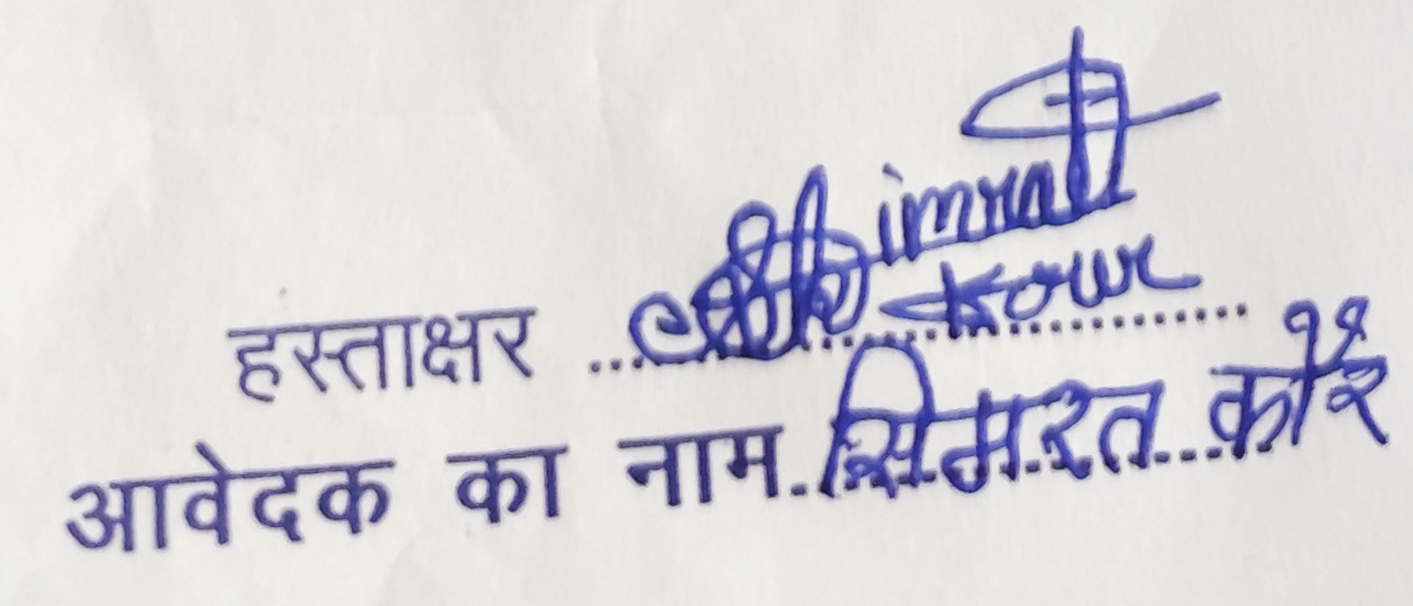 हस्ताक्षर ........ Simrat Kour
आवेदक का नाम. सिमरत कौर